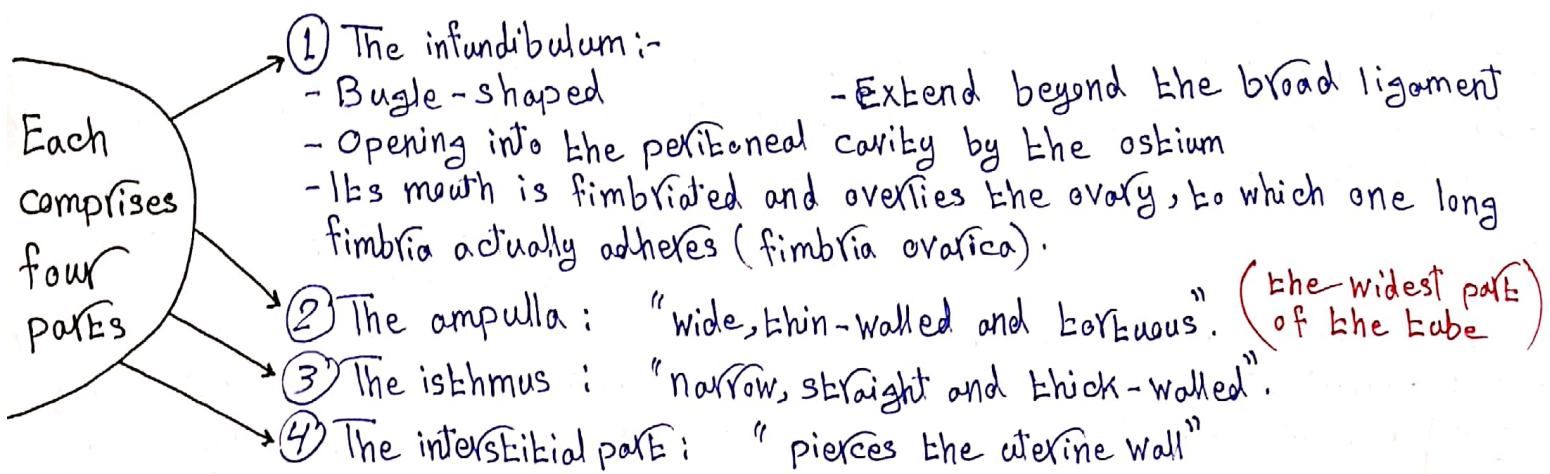 Each
comprises
four
parts
① The infundibulum :-
- Bugle - shaped - Extend beyond the broad ligament
- Opening into the peritoneal cavity by the ostium
- Its mouth is fimbriated and overlies the ovary, to which one long
fimbria actually adheres (fimbria ovarica).
② The ampulla : "wide, thin-walled and tortuous". (the widest part
of the tube)
③ The isthmus : "narrow, straight and thick-walled".
④ The interstitial part : "pierces the uterine wall"